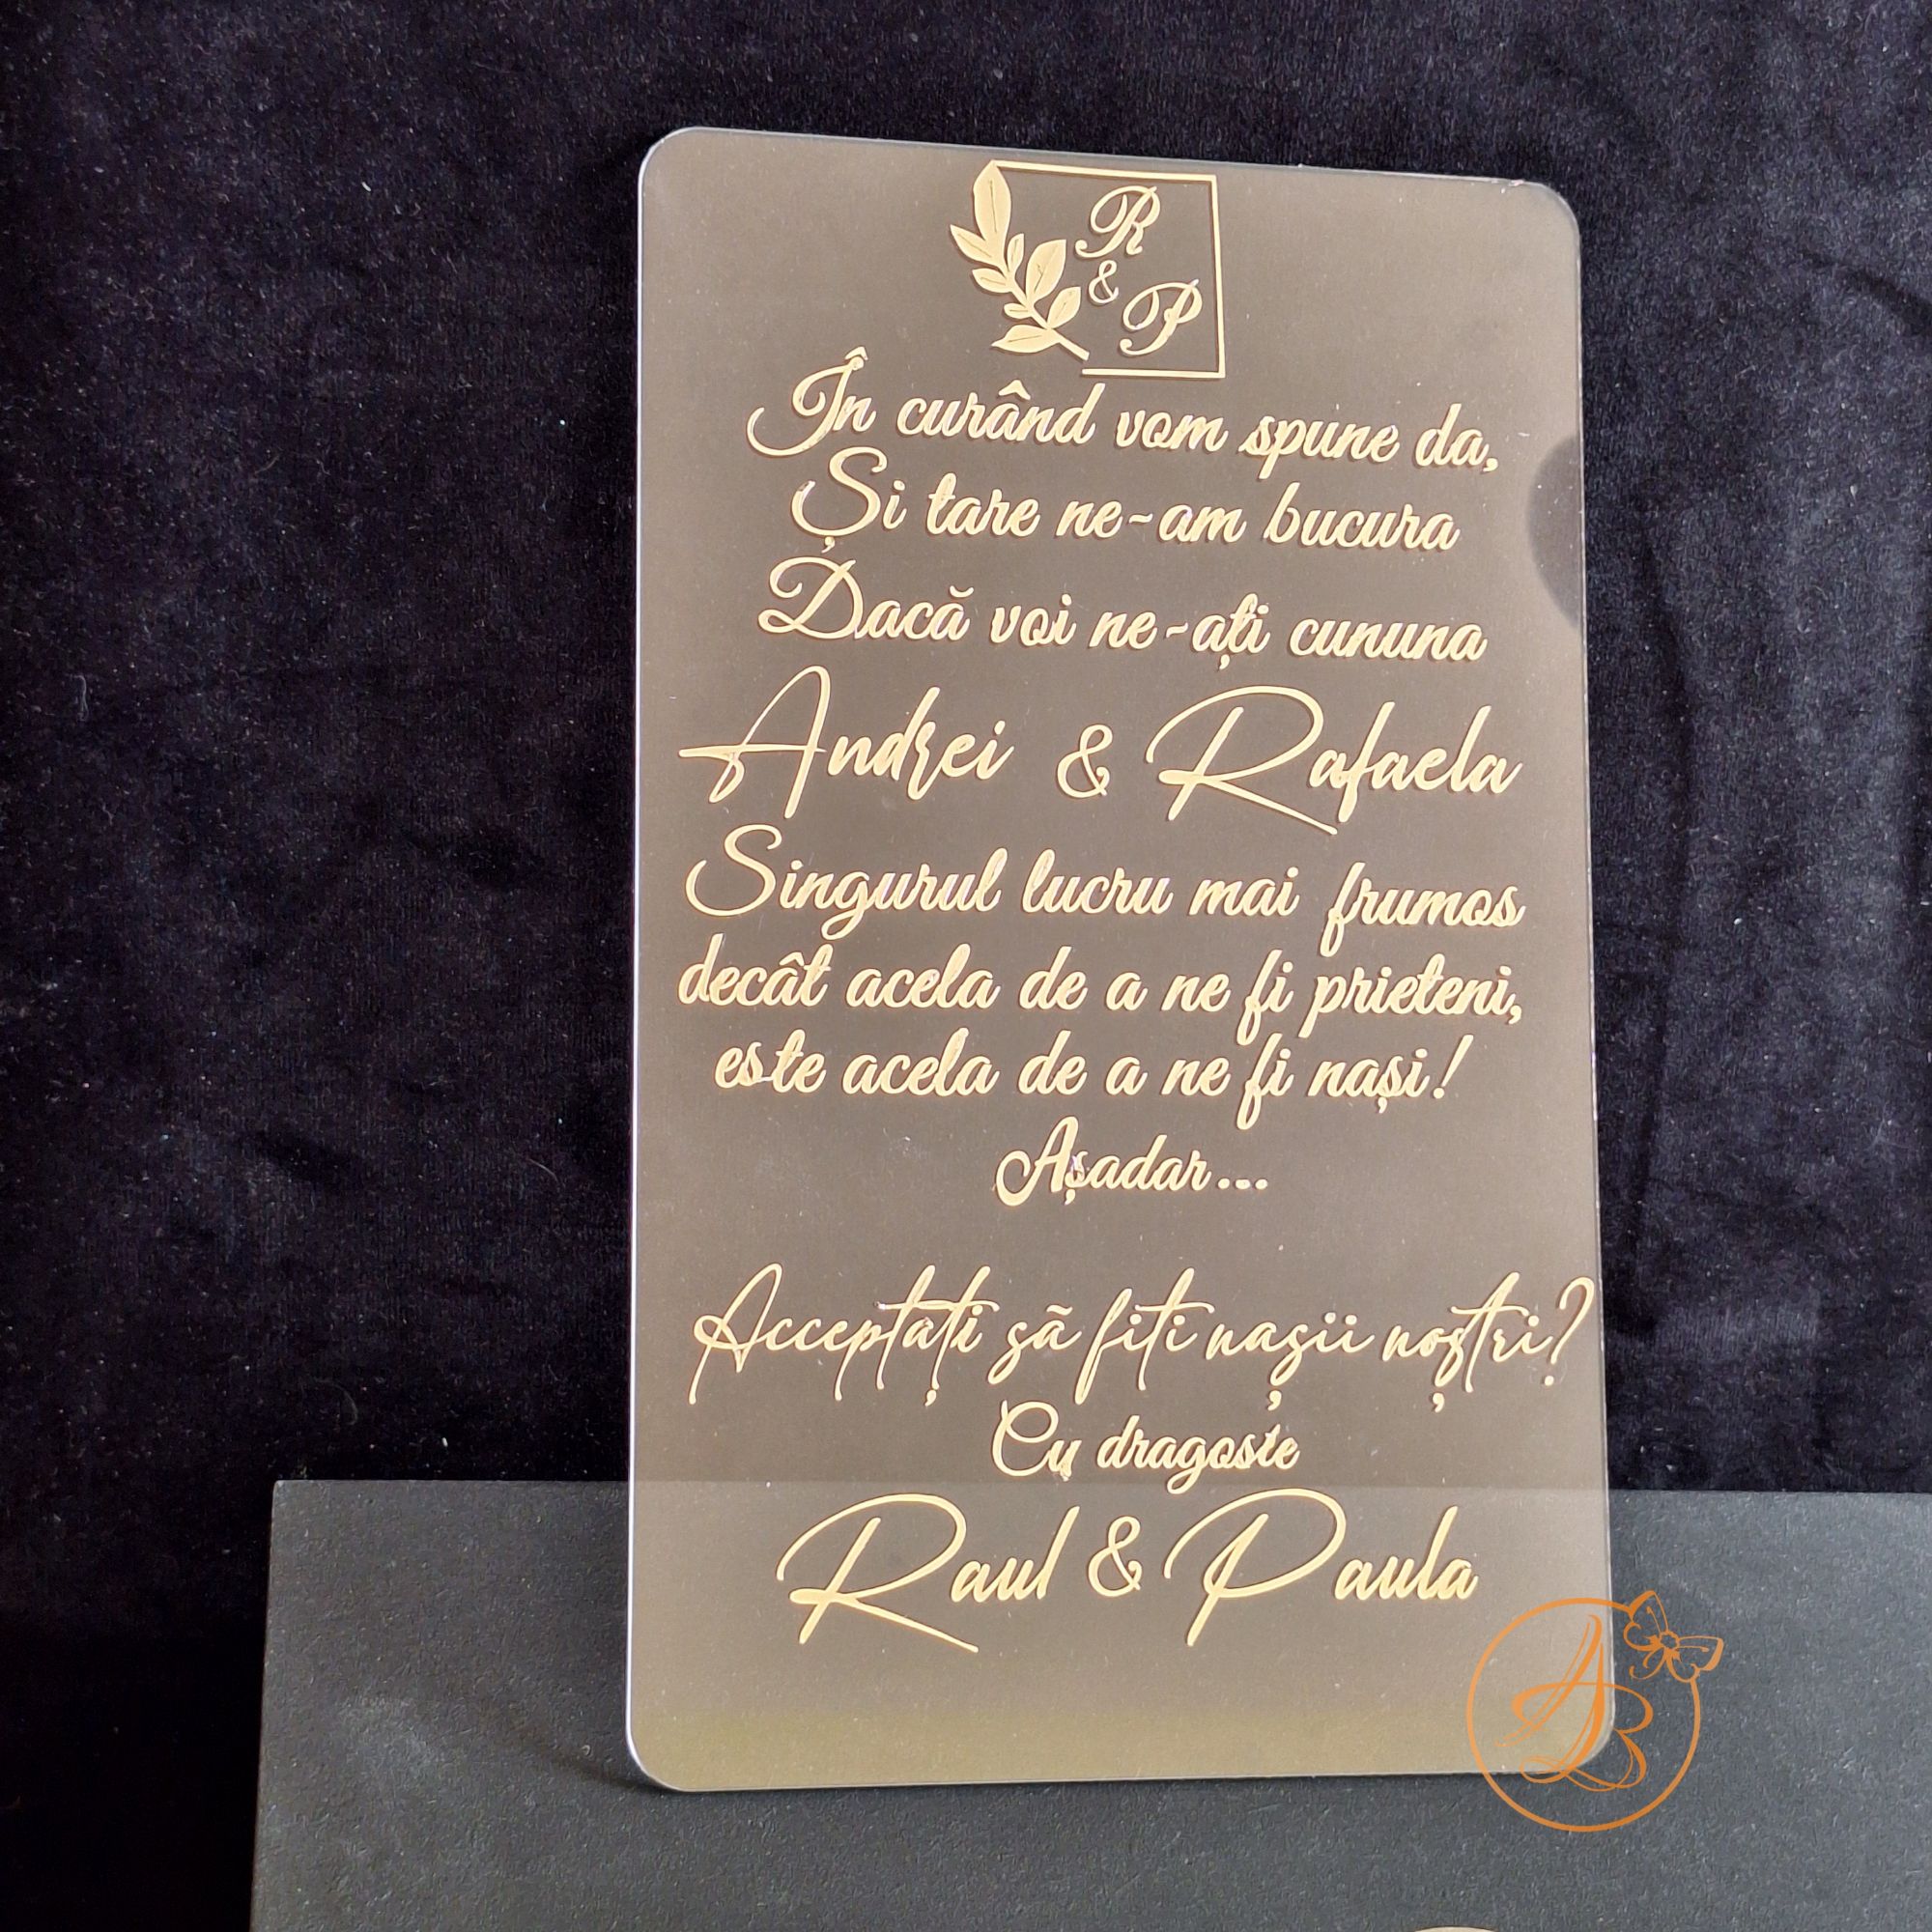 R
&
P
În curând vom spune da,
Și tare ne-am bucura
Dacă voi ne-ați cununa
Andrei & Rafaela
Singurul lucru mai frumos
decât acela de a ne fi prieteni,
este acela de a ne fi nași!
Așadar...
Acceptați să fiti nașii noștri?
Cu dragoste
Raul & Paula
AB